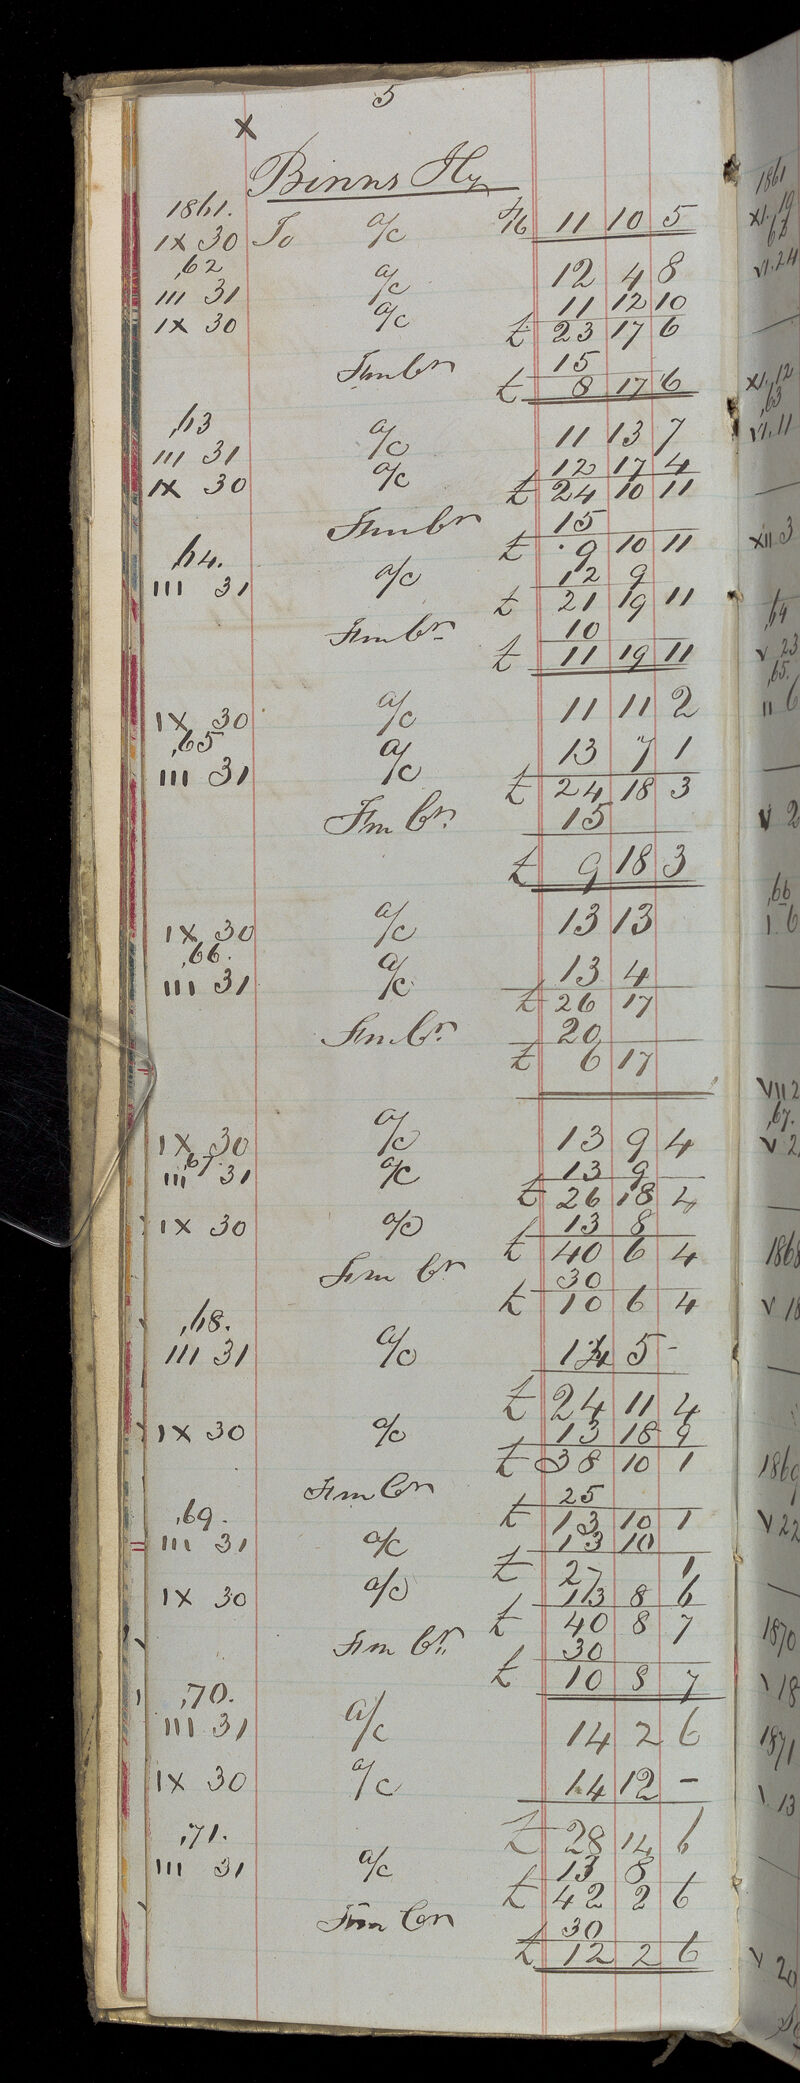 5
x
Binns Hy
1861.
IX 30 To a/c £ 11 10 5
,62
III 31 a/c 12 4 8
IX 30 a/c 11 12 10
£ 23 17 6
Fm Cr 15
£ 8 17 6
,63
III 31 a/c 11 13 7
IX 30 a/c 12 17 4
£ 24 10 11
Fm Cr 15
£ 9 10 11
,64.
III 31 a/c 12 9
£ 21 19 11
Fm Cr 10
£ 11 19 11
IX 30 a/c 11 11 2
,65
III 31 a/c 13 7 1
£ 24 18 3
Fm Cr. 15
£ 9 18 3
IX 30 a/c 13 13
,66.
III 31 a/c 13 4
£ 26 17
Fm Cr. 20
£ 6 17
IX 30 a/c 13 9 4
,67.
III 31 a/c 13 9
£ 26 18 4
IX 30 a/c 13 8
£ 40 6 4
Fm Cr 30
£ 10 6 4
,68.
III 31 a/c 14 5 -
£ 24 11 4
IX 30 a/c 13 18 9
£ 38 10 1
Fm Cr 25
£ 13 10 1
,69.
III 31 a/c 13 10
£ 27 1
IX 30 a/c 13 8 6
£ 40 8 7
Fm Cr. 30
£ 10 8 7
,70.
III 31 a/c 14 2 6
IX 30 a/c 14 12 -
£ 28 14 6
,71.
III 31 a/c 13 8
£ 42 2 6
Fm Cr 30
£ 12 2 6
1861
XI. 19
62
VI. 24
XI. 12
,63
VI. 11
XII 3
,64
V 23
,65.
II 6
V 2
,66
I 6
VII 2
,67.
V 2
1868
V 18
1869
V 22
1870
V 18
1871
V 13
V 20